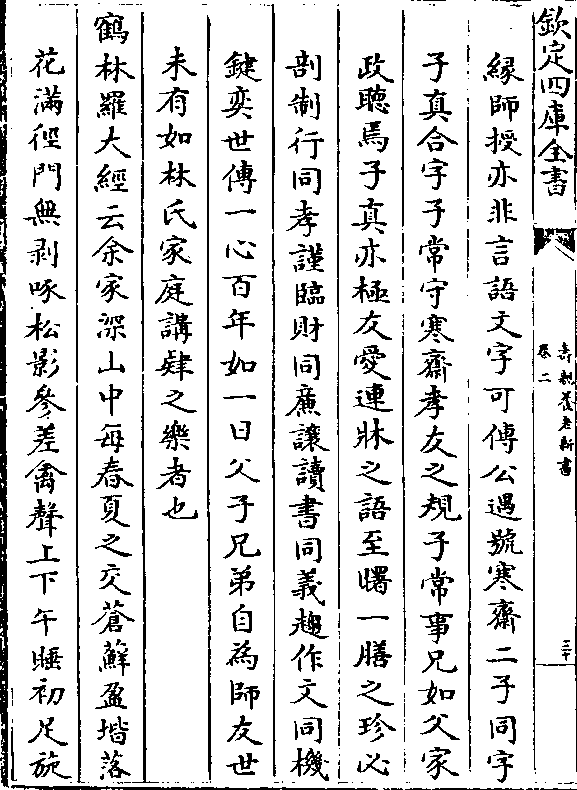 欽定四庫全書
壽親養老新書
卷二
三十
緣師授亦非言語文字可傳公遇號寒齋二子同字
子真合字子常守寒齋孝友之規子常事兄如父家
政聽焉子真亦極友愛連牀之語至曙一膳之珍必
剖制行同孝謹臨財同㢘讓讀書同義趣作文同機
鍵奕世傳一心百年如一日父子兄弟自為師友世
未有如林氏家庭講肄之樂者也
鶴林羅大經云余家深山中每春夏之交蒼蘚盈堦落
花滿徑門無剥啄松影參差禽聲上下午睡初足旋